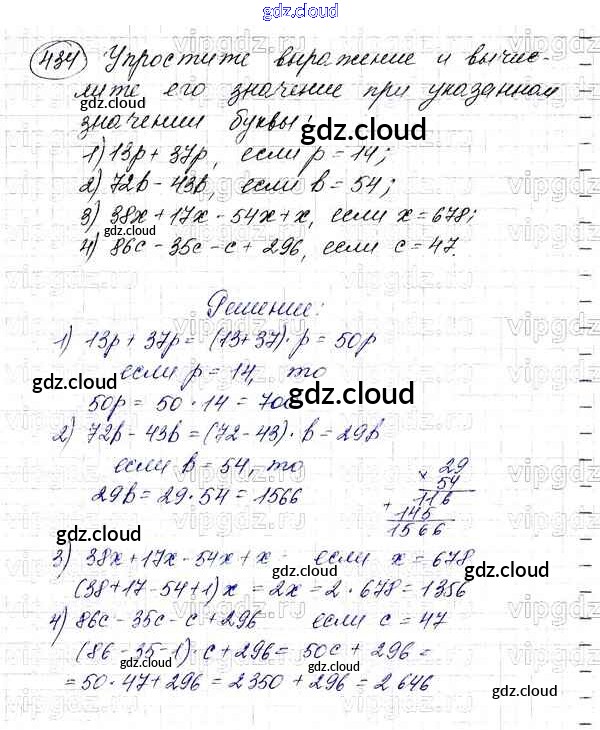 gdz.cloud
434 Упростите выражение и вычис-
лите его значение при указанном
значении буквы:
gdz.cloud
1) 13p + 37p, если p = 14;
2) 72b - 43b, если b = 54;
3) 38x + 17x - 54x + x, если x = 678;
gdz.cloud
4) 86c - 35c - c + 296, если c = 47.
Решение:
1) 13p + 37p = (13+37) · p = 50p
если p = 14, то
gdz.cloud
gdz.cloud
50p = 50 · 14 = 700
2) 72b - 43b = (72-43) · b = 29b
если b = 54, то
29b = 29 · 54 = 1566
× 29
54
116
+ 145
1566
gdz.cloud
3) 38x + 17x - 54x + x если x = 678
gdz.cloud
(38+17-54+1)x = 2x = 2 · 678 = 1356
4) 86c - 35c - c + 296 если c = 47
(86-35-1) · c + 296 = 50c + 296 =
gdz.cloud
= 50 · 47 + 296 = 2350 + 296 = 2646
gdz.cloud